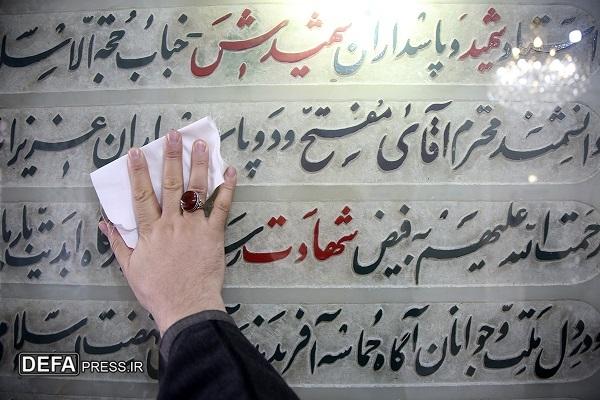 استاد شهید و پاسداران شهیدش - جناب حجة الاسلا
دانشمند محترم آقای مفتح و دو عزیز
رحمت الله علیهم به فیض شهادت ابدیت
و در دل ملت و جوانان آگاه حماسه نهضت اسلامی
DEFAPRESS.IR